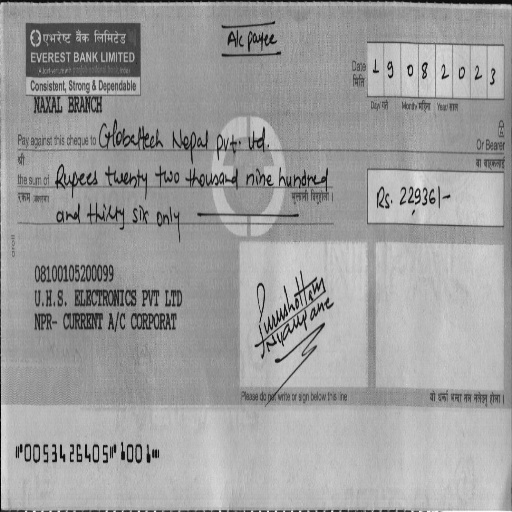 A/c payee
एभरेष्ट बैंक लिमिटेड
EVEREST BANK LIMITED
Consistent, Strong & Dependable
NAXAL BRANCH
Date
मिति
19082023
Day/ गते Month/ महिना Year/ साल
Pay against this cheque to Globaltech Nepal pvt. ltd. Or Bearer
श्री वा वाहकलाई
the sum of Rupees twenty two thousand nine hundred
रकम
and thirty six only
Rs. 22,936/-
08100105200099
U.H.S. ELECTRONICS PVT LTD
NPR- CURRENT A/C CORPORAT
Please do not write or sign below this line
"0053426405" 1001